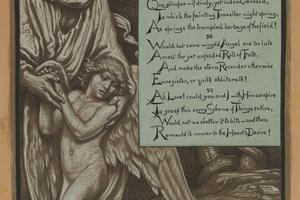 One glimpse—if dimly, yet indeed, revealed,
To which the fainting Traveller might spring,
As springs the trampled herbage of the field!
Would but some wingéd Angel ere too late
Arrest the yet unfolded Roll of Fate,
And make the stern Recorder otherwise
Enregister, or quite obliterate!
Ah Love! could you and I with Him conspire
To grasp this sorry Scheme of Things entire,
Would not we shatter it to bits—and then
Remould it nearer to the Heart's Desire!